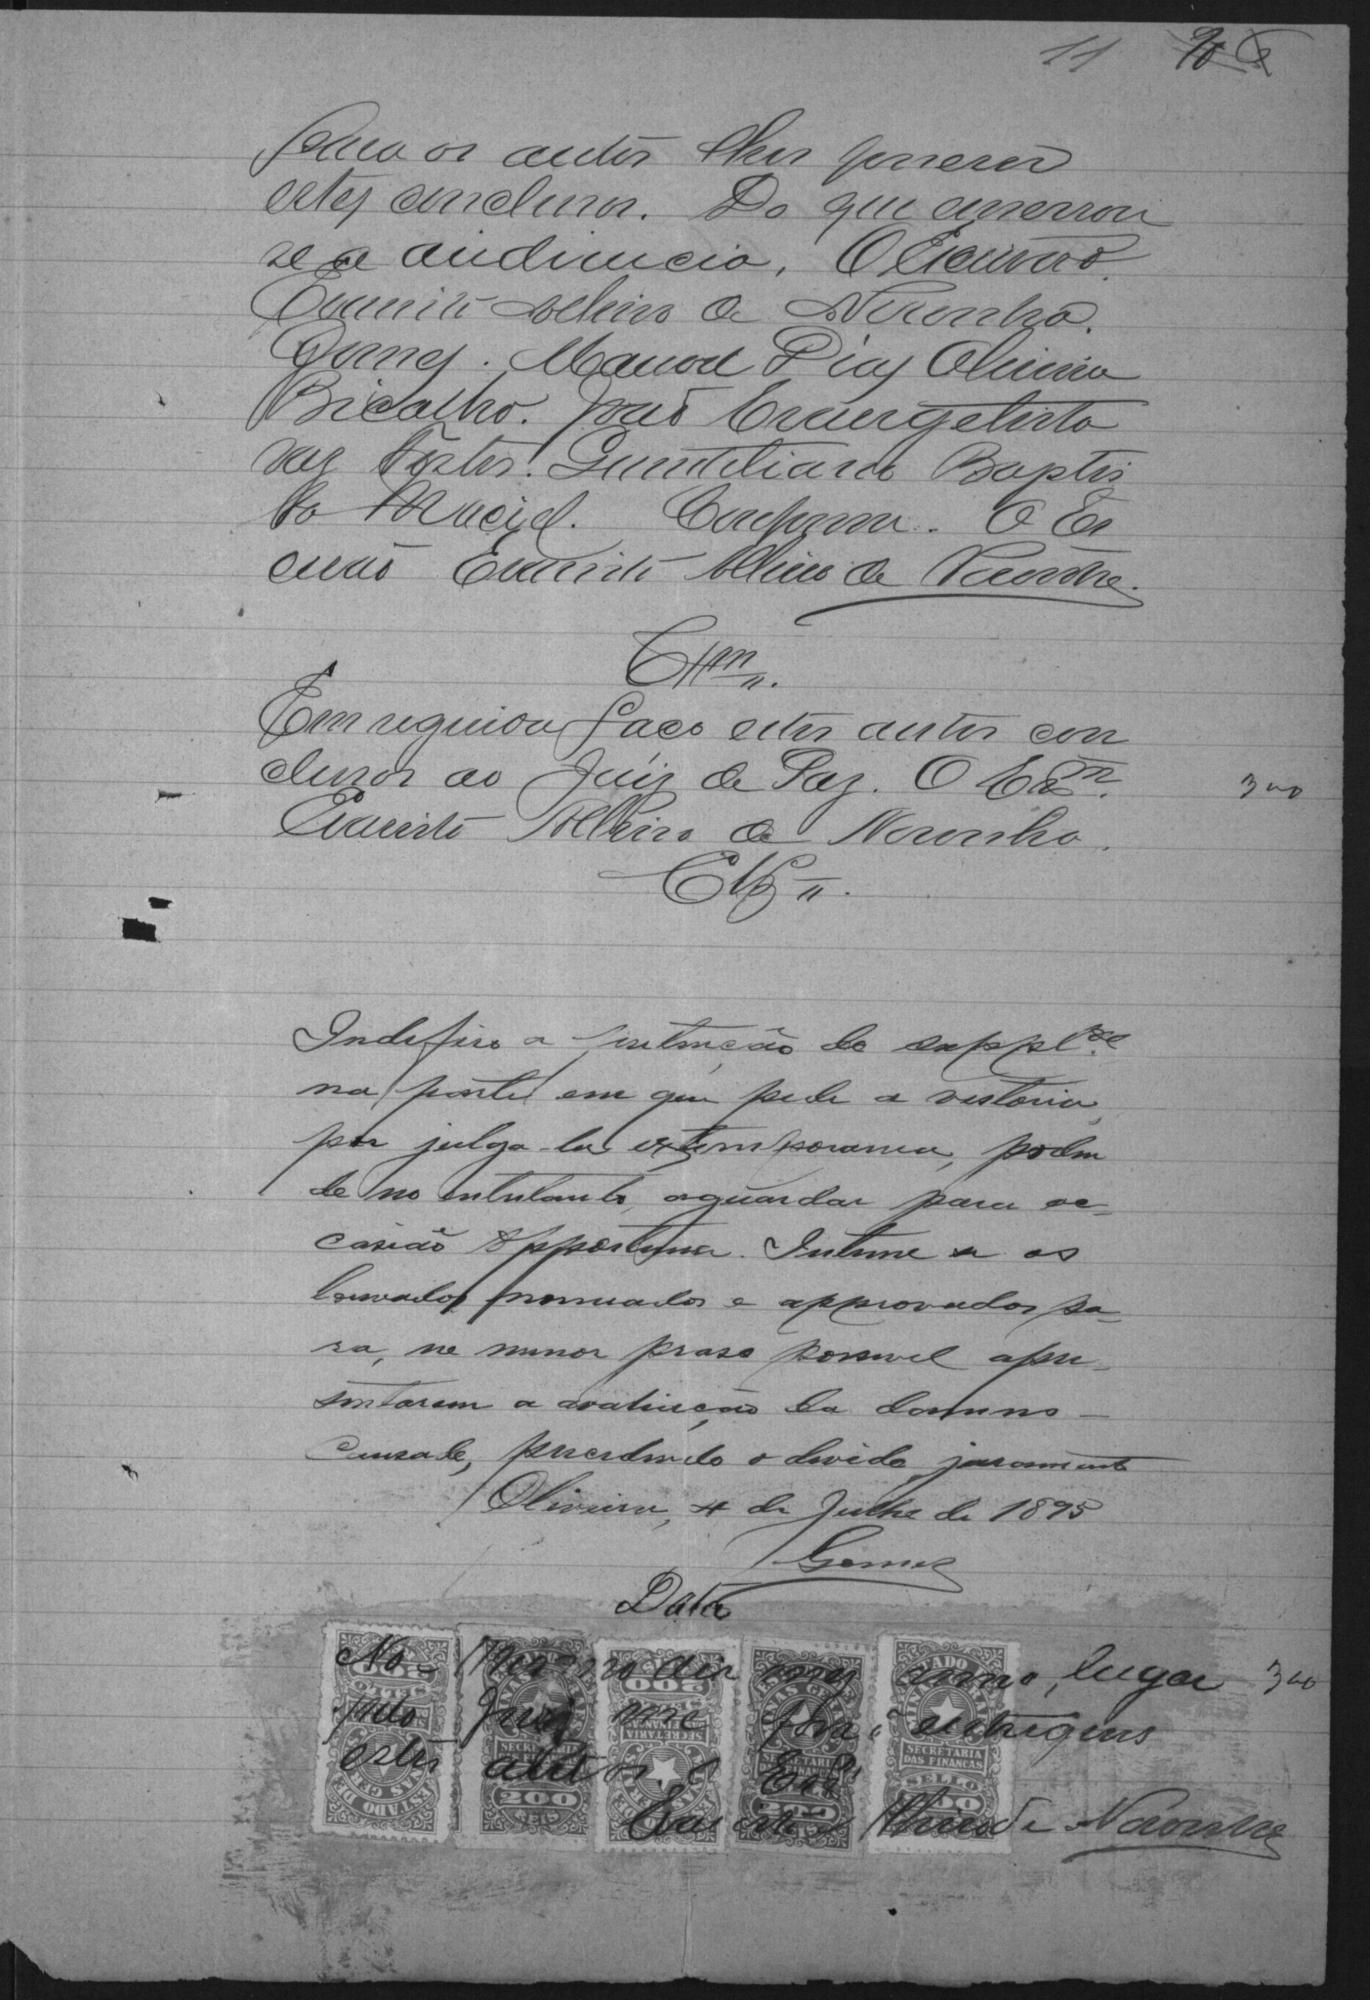 11
para os autos lhes serem
estes conclusos. Do que encerrou
se a audiencia. O Escrivão
Evaristo Albino de Noronha.
Gomes. Manoel Dias Oliveira
Bicalho. João Evangelista
vas Fortes. Quintiliano Baptis
ta Maciel. Conforme. O Es
crivão Evaristo Albino de Noronha.
Em seguida faço estes autos con
clusos ao Juiz de Paz. O Escm.
300
Evaristo Albino de Noronha.
Clsº
Indefiro a pretenção do suppl.e
na parte em que pede a vistoria,
por julga-la extemporanea, poden
do no entretanto, aguardar para oc-
casião opportuna. Intime-se os
louvados nomeados e approvados pa-
ra, no menor praso possivel apre-
sentarem a avaliação do damno
causado, precedendo o devido juramento
Oliveira, 4 de Julho de 1895
Gomes
Data
No mesmo dia mez anno, lugar
300
pelo Juiz me foi entregues
estes autos. O Escm
Evaristo Albino de Noronha
ESTADO DE MINAS GERAES
SECRETARIA DAS FINANÇAS
SELLO
200
REIS